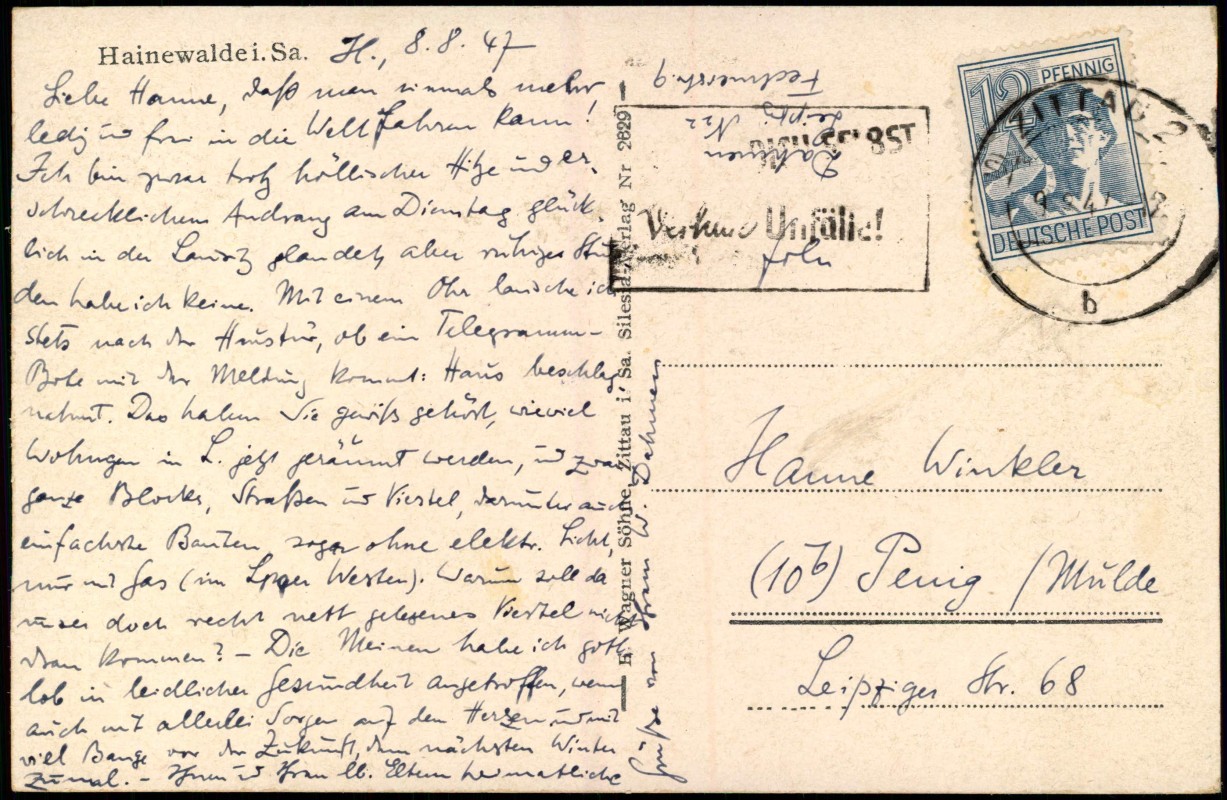 Hainewalde i. Sa. H., 8.8.47
Liebe Hanne, daß man einmals mehr
ledig u frei in die Welt fahren kann!
Ich bin zwar trotz höllischer Hitze und er-
schrecklichem Andrang am Dienstag glück-
lich in der Lausitz gelandet, aber ruhige Stun
den habe ich keine. Mit einem Ohr lausche ich
stets nach der Haustür, ob ein Telegramm-
Bote mit der Meldung kommt: Haus beschlag
nahmt. Das haben Sie gewiß gehört, wieviel
Wohnungen in L. jetzt geräumt werden, und zwar
ganze Blocks, Straßen und Viertel, darunter auch
einfachste Bauten, sogar ohne elektr. Licht,
nur mit Gas (im Westen). Warum soll da
unser doch recht nett gelegenes Viertel nicht
dran kommen? – Die Meinen habe ich gott
lob in leidlicher Gesundheit angetroffen, wenn
auch mit allerlei Sorgen auf dem Herzen und mit
viel Bange vor der Zukunft, dem nächsten Winter
zumal. – Ihnen u Ihren lb. Eltern heimatliche
Grüße von Ihrem W. Dahmen
H. Wagner Söhne, Zittau i. Sa. Silesia-Verlag Nr 2829
Dahmen
Leipzig N 22
Fechnerstr. 9
DICH SELBST
Unfälle!
12 PFENNIG
DEUTSCHE POST
ZITTAU 2
b
Hanne Winkler
(10b) Penig / Mulde
Leipziger Str. 68